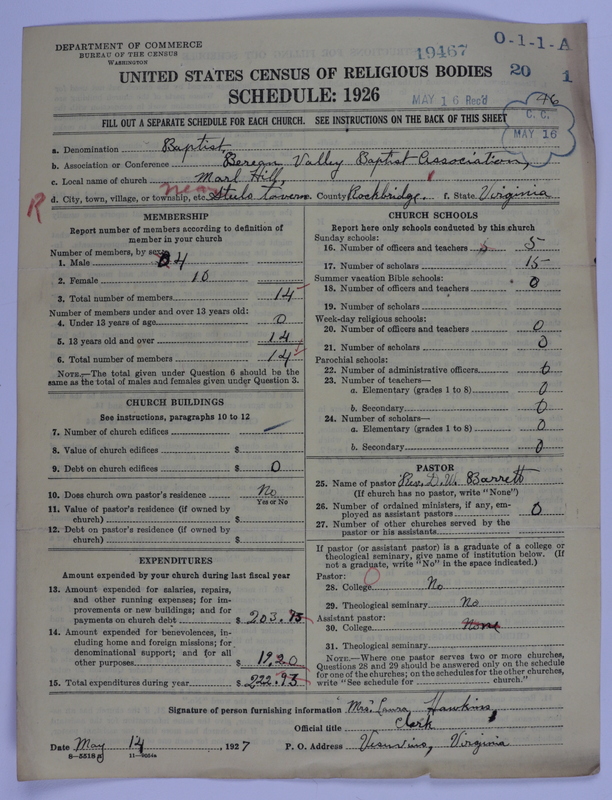 DEPARTMENT OF COMMERCE
BUREAU OF THE CENSUS
WASHINGTON
19467
O-1-1-A
UNITED STATES CENSUS OF RELIGIOUS BODIES
20 1
SCHEDULE: 1926
MAY 16 Rec'd
46
FILL OUT A SEPARATE SCHEDULE FOR EACH CHURCH. SEE INSTRUCTIONS ON THE BACK OF THIS SHEET
C. C.
MAY 16
a. Denomination Baptist
b. Association or Conference Berean Valley Baptist Association,
c. Local name of church Marl Hill,
R
d. City, town, village, or township, etc. near Steels tavern. County Rockbridge. f. State Virginia
MEMBERSHIP
Report number of members according to definition of member in your church
Number of members, by sex:
1. Male 4
2. Female 10
3. Total number of members 14
Number of members under and over 13 years old:
4. Under 13 years of age 0
5. 13 years old and over 14
6. Total number of members 14
NOTE.—The total given under Question 6 should be the same as the total of males and females given under Question 3.
CHURCH BUILDINGS
See instructions, paragraphs 10 to 12
7. Number of church edifices
8. Value of church edifices $
9. Debt on church edifices $ 0
10. Does church own pastor's residence No
Yes or No
11. Value of pastor's residence (if owned by church) $
12. Debt on pastor's residence (if owned by church) $
EXPENDITURES
Amount expended by your church during last fiscal year
13. Amount expended for salaries, repairs, and other running expenses; for improvements or new buildings; and for payments on church debt $ 203.75
14. Amount expended for benevolences, including home and foreign missions; for denominational support; and for all other purposes $ 19.20
15. Total expenditures during year $ 222.95
CHURCH SCHOOLS
Report here only schools conducted by this church
Sunday schools:
16. Number of officers and teachers 5
17. Number of scholars 15
Summer vacation Bible schools:
18. Number of officers and teachers 0
19. Number of scholars
Week-day religious schools:
20. Number of officers and teachers 0
21. Number of scholars 0
Parochial schools:
22. Number of administrative officers 0
23. Number of teachers—
a. Elementary (grades 1 to 8) 0
b. Secondary 0
24. Number of scholars—
a. Elementary (grades 1 to 8) 0
b. Secondary 0
PASTOR
25. Name of pastor Rev. D. W. Barrett
(If church has no pastor, write "None")
26. Number of ordained ministers, if any, employed as assistant pastors 0
27. Number of other churches served by the pastor or his assistants
If pastor (or assistant pastor) is a graduate of a college or theological seminary, give name of institution below. (If not a graduate, write "No" in the space indicated.)
Pastor:
28. College No
29. Theological seminary No
Assistant pastor:
30. College None
31. Theological seminary
NOTE.—Where one pastor serves two or more churches, Questions 28 and 29 should be answered only on the schedule for one of the churches; on the schedules for the other churches, write "See schedule for church."
Signature of person furnishing information Mrs. Laura Hawkins,
Official title Clerk
Date May 14, 1927 P. O. Address Vesuvius, Virginia
8-5518 11-9664a